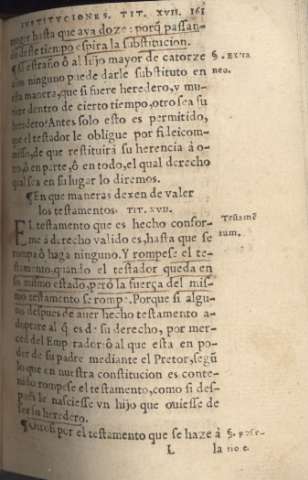 INSTITVCIONES. TIT. XVII. 161
muger hasta que aya doze: porq̃ passan-
do deste tiempo espira la substitucion.
¶ Al estraño ô al hijo mayor de catorze §. Extra
años ninguno puede darle substituto en neo.
esta manera, que si fuere heredero, y mu-
riere dentro de cierto tiempo, otro sea su
heredero: Antes solo esto es permitido,
que el testador le obligue por fideicom-
misso, de que restituirá su herencia á o-
tro, ô en parte, ô en todo, el qual derecho
qual sea en su lugar lo diremos.
¶ En que maneras dexen de valer
los testamentos. TIT. XVII.
EL testamento que es hecho confor- Testamẽ
me á derecho valido es, hasta que se tum.
rompa ô haga ninguno. Y rompese el te-
stamento quando el testador queda en
su mismo estado, pero la fuerça del mis-
mo testamento se rompe. Porque si algu-
no despues de auer hecho testamento a-
doptare al q̃ es de su derecho, por mer-
ced del Emperador: ô al que esta en po-
der de su padre mediante el Pretor, segũ
lo que en nuestra constitucion es conte-
nido rompese el testamento, como si des-
pues le nasciesse vn hijo que ouiesse de
ser su heredero.
¶ por el testamento que se haze á §.
L la